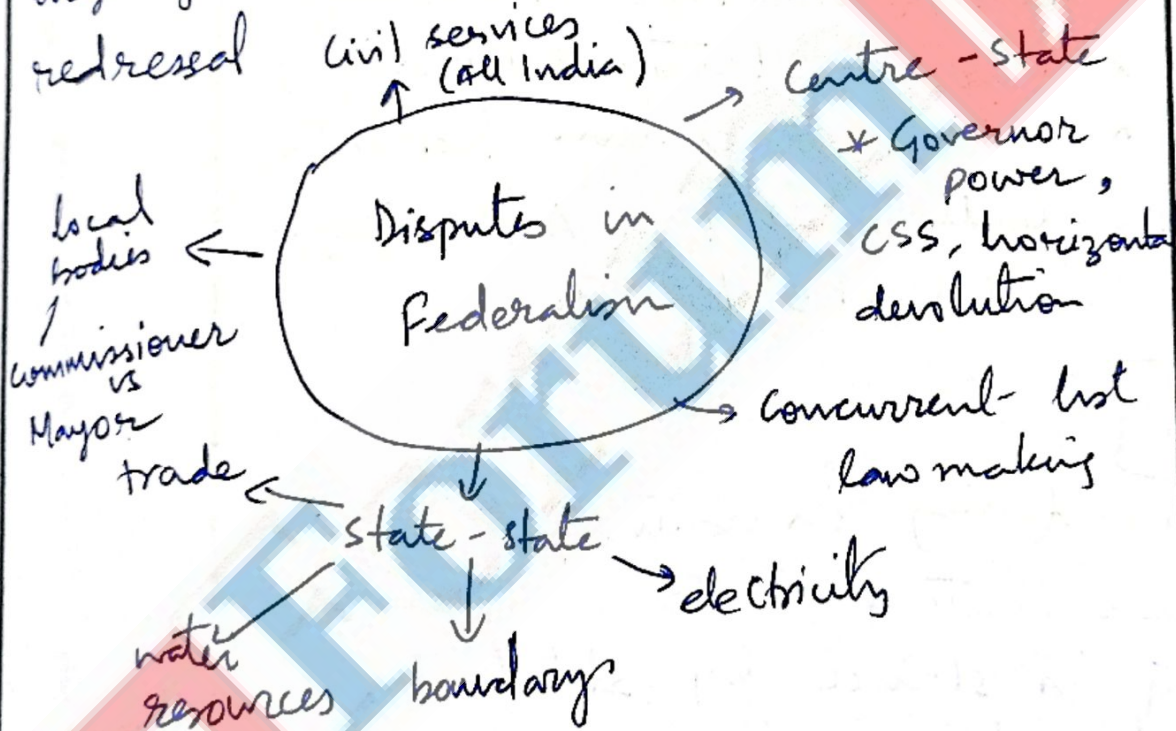 redressal
Civil services
(All India)
Centre - State
* Governor
power,
CSS, horizonta
devolution
Disputes in
Federalism
local
bodies
commissioner
vs
Mayor
concurrent list
law making
trade
state - state
electricity
water
resources
boundary
Forum